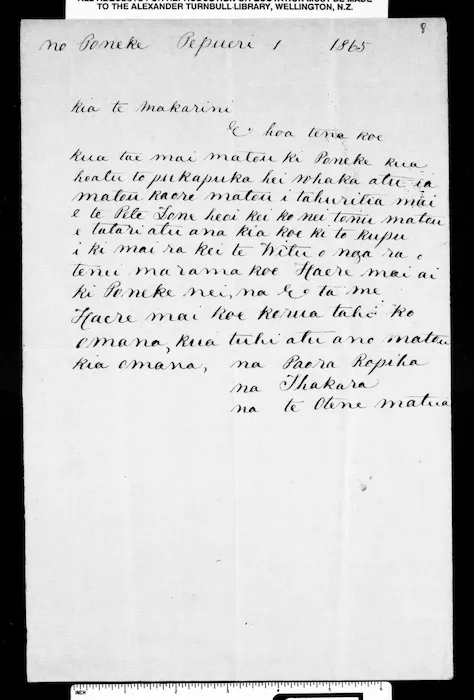 TO THE ALEXANDER TURNBULL LIBRARY, WELLINGTON, N.Z.
8
no Poneke Pepueri 1 1865
kia te Makarini
E hoa tena koe
kua tae mai matou ki Poneke kua
hoatu to pukapuka hei whaka atu ia
matou kaore matou i tahuritia mai
e te Pete Tone heoi kei ko nei tonu matou
e tatari atu ana kia koe ki to kupu
i ki mai ra kei te Witu o nga ra o
tenei marama koe Haere mai ai
ki Poneke nei, na E ta me
Haere mai koe korua tahi ko
Omana, kua tuhi atu ano matou
kia Omana, na Paora Ropiha
na Ihakara
na te Otene matua
INCH 1 2 3 4